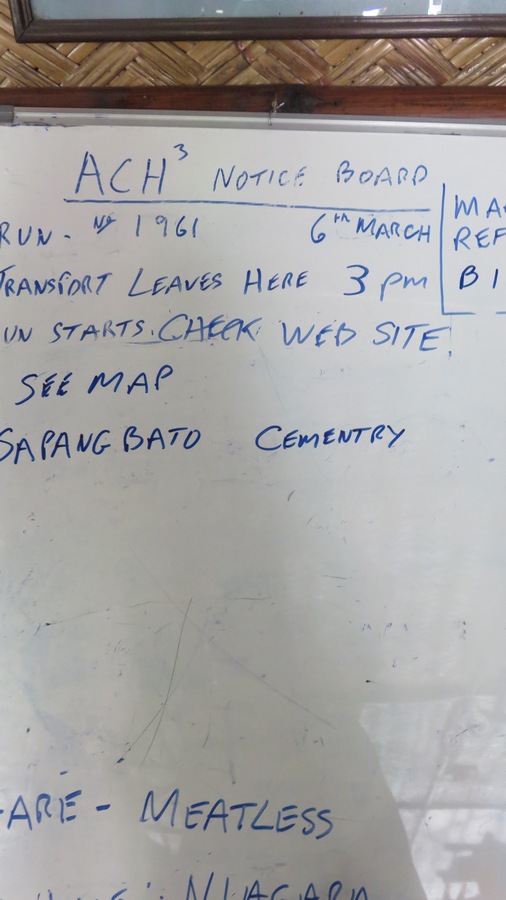 ACH³ NOTICE BOARD
RUN - Nº 1961 6TH MARCH
TRANSPORT LEAVES HERE 3 pm
UN STARTS. CHECK WEB SITE.
SEE MAP
SAPANGBATO CEMENTRY
MA
REF
B 1
ARE - MEATLESS
NIAGARA